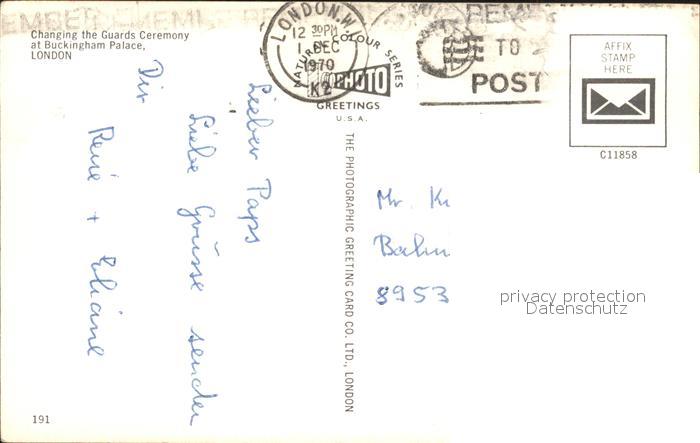 Changing the Guards Ceremony
at Buckingham Palace,
LONDON
LONDON.W.
12 30PM
1 DEC
1970
K2
NATURAL COLOUR SERIES
PHOTO
GREETINGS
U.S.A.
TO
POST
AFFIX
STAMP
HERE
C11858
THE PHOTOGRAPHIC GREETING CARD CO. LTD., LONDON
Lieber Paps
Liebe Grüsse senden
Dir
René + Eliane
Mr. K
Bahn
8953
privacy protection
Datenschutz
191